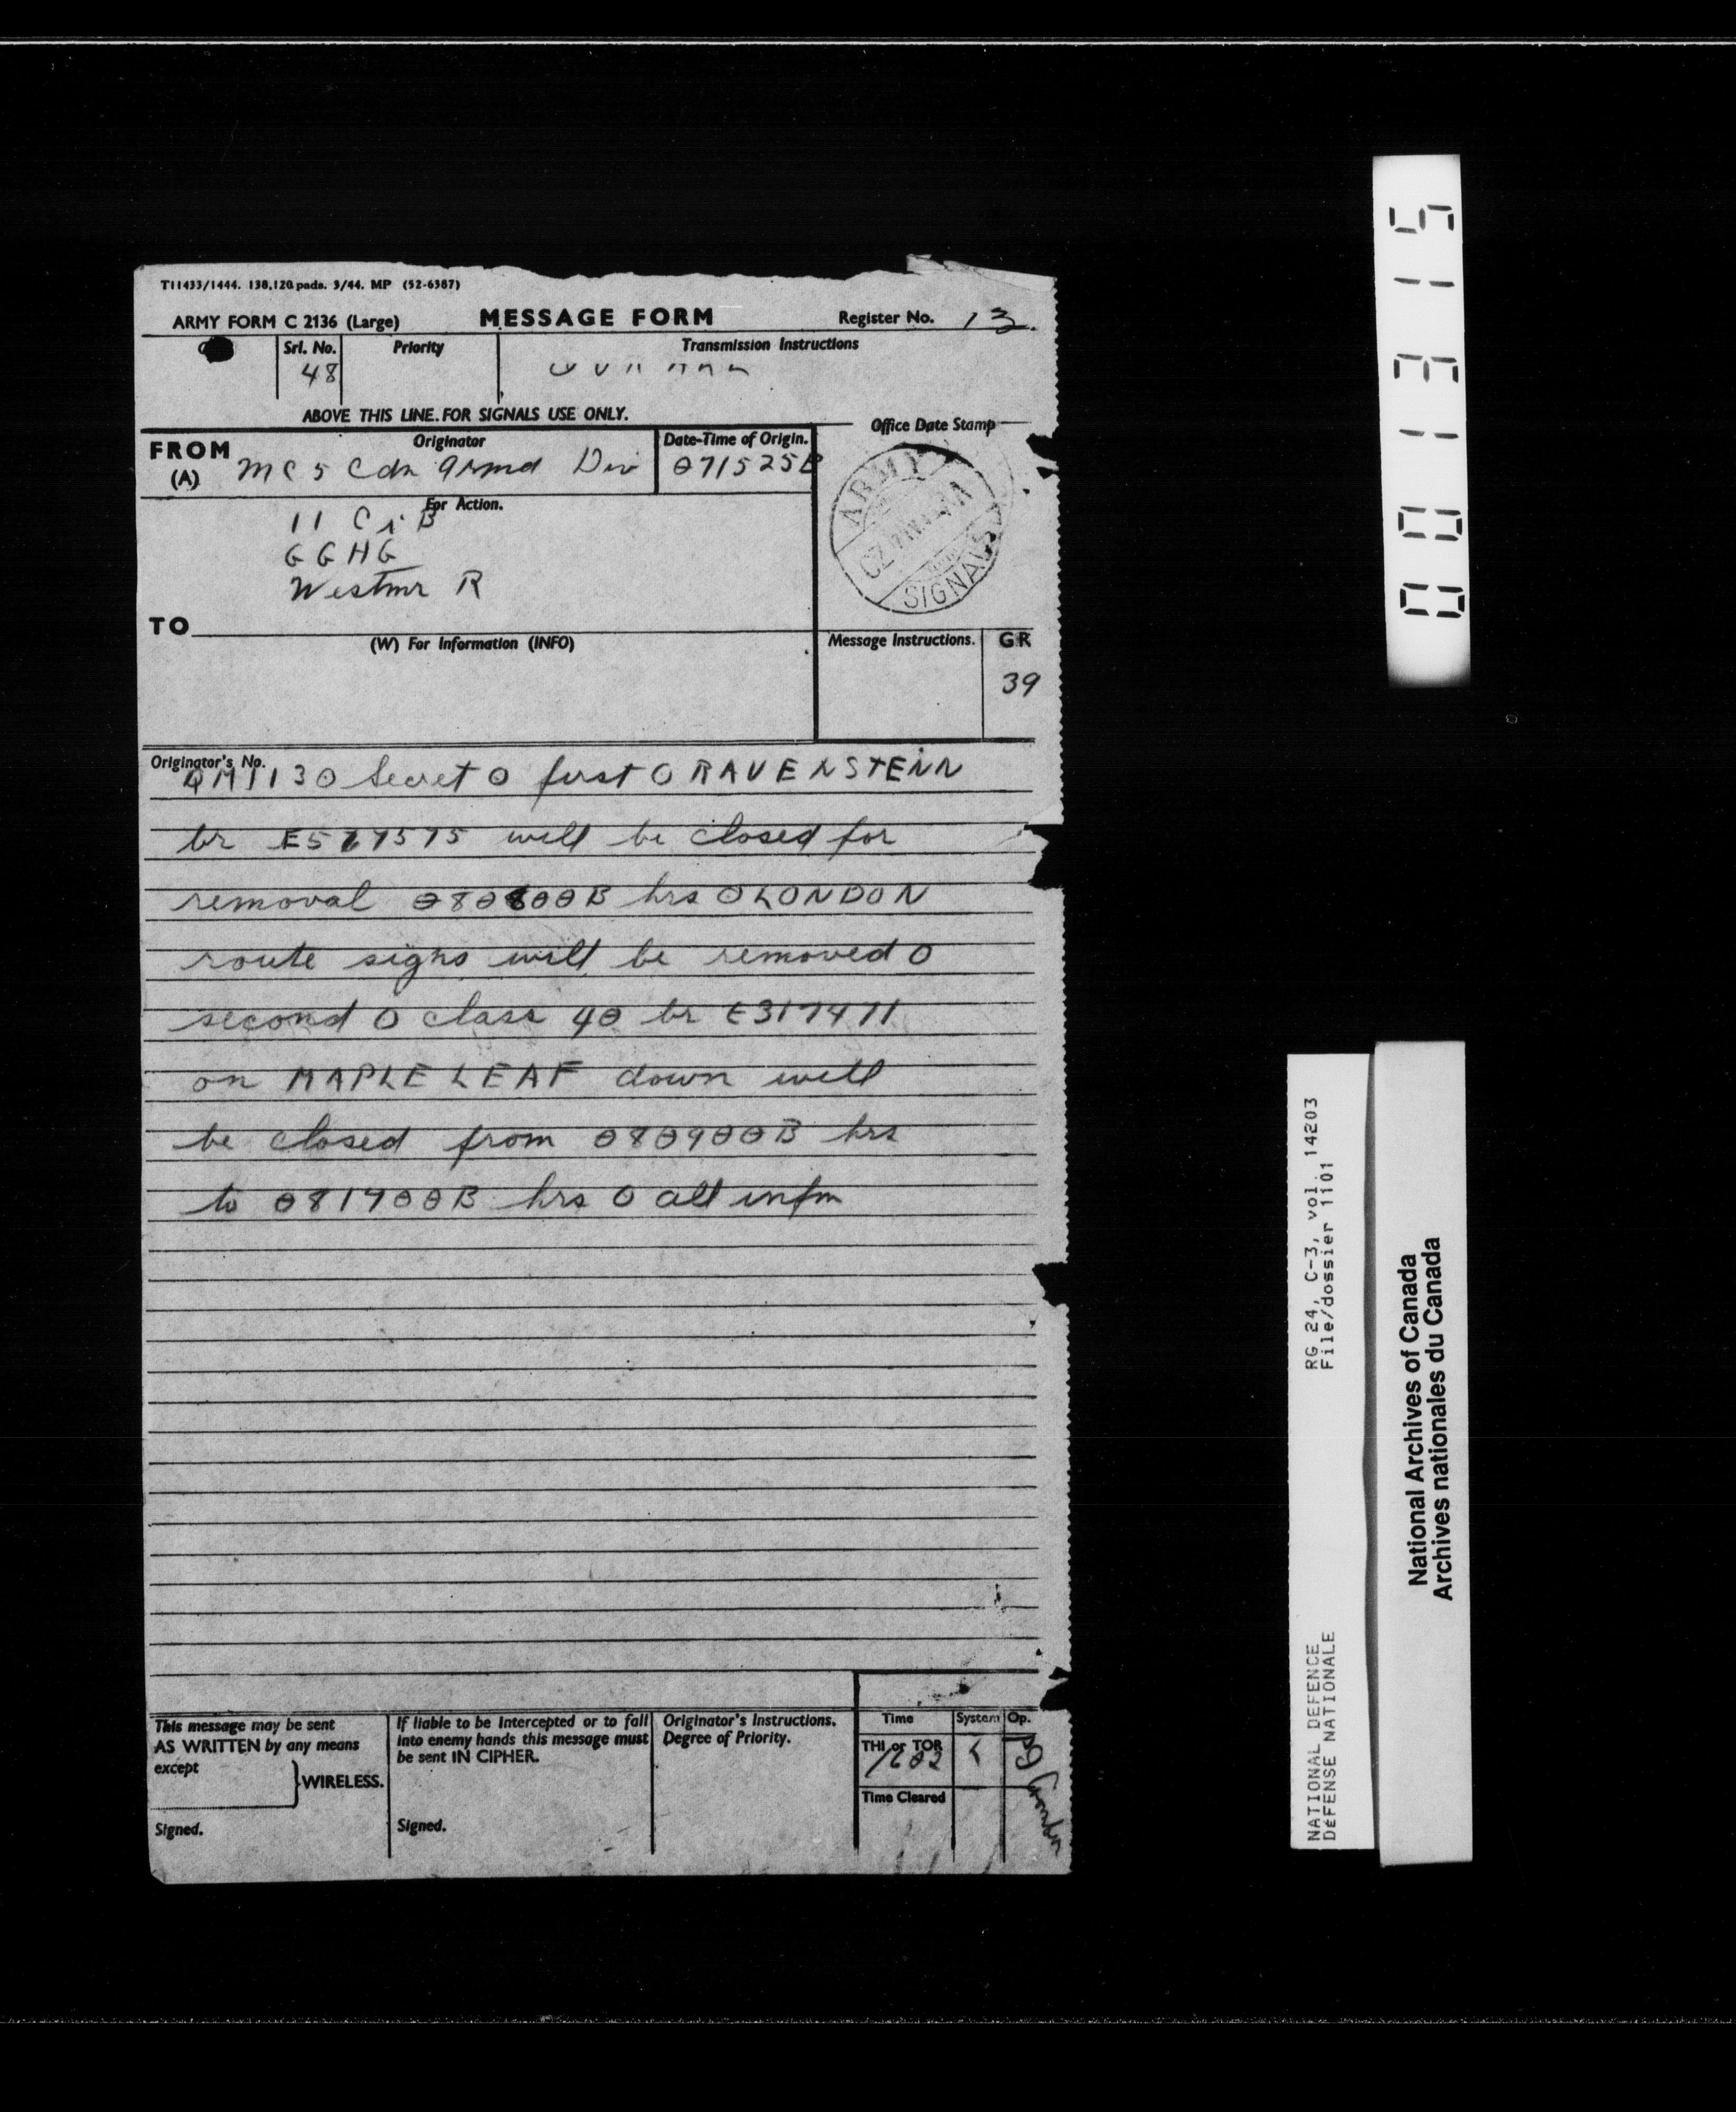 T11433/1444. 138,120 pads. 3/44. MP (52-6387)
ARMY FORM C 2136 (Large) MESSAGE FORM Register No. 13.
Srl. No. Priority Transmission Instructions
48
ABOVE THIS LINE FOR SIGNALS USE ONLY.
FROM Originator Date-Time of Origin. Office Date Stamp
(A) MC 5 Cdn Armd Div 071525B
ARMY
SIGNALS
For Action.
11 C i B
GGHG
Westmr R
TO
(W) For Information (INFO) Message Instructions. GR
39
Originator's No.
QM1130 Secret O first O RAVENSTEIN
br E577575 will be closed for
removal 080800B hrs O LONDON
route signs will be removed O
second O class 40 br E317471
on MAPLE LEAF down will
be closed from 080900B hrs
to 081700B hrs O all infm
This message may be sent
AS WRITTEN by any means
except
WIRELESS.
Signed.
If liable to be intercepted or to fall
into enemy hands this message must
be sent IN CIPHER.
Signed.
Originator's Instructions.
Degree of Priority.
Time System Op.
THI or TOR
1602
Time Cleared
001315
RG 24, C-3, vol. 14203
File/dossier 1101
NATIONAL DEFENCE
DÉFENSE NATIONALE
National Archives of Canada
Archives nationales du Canada